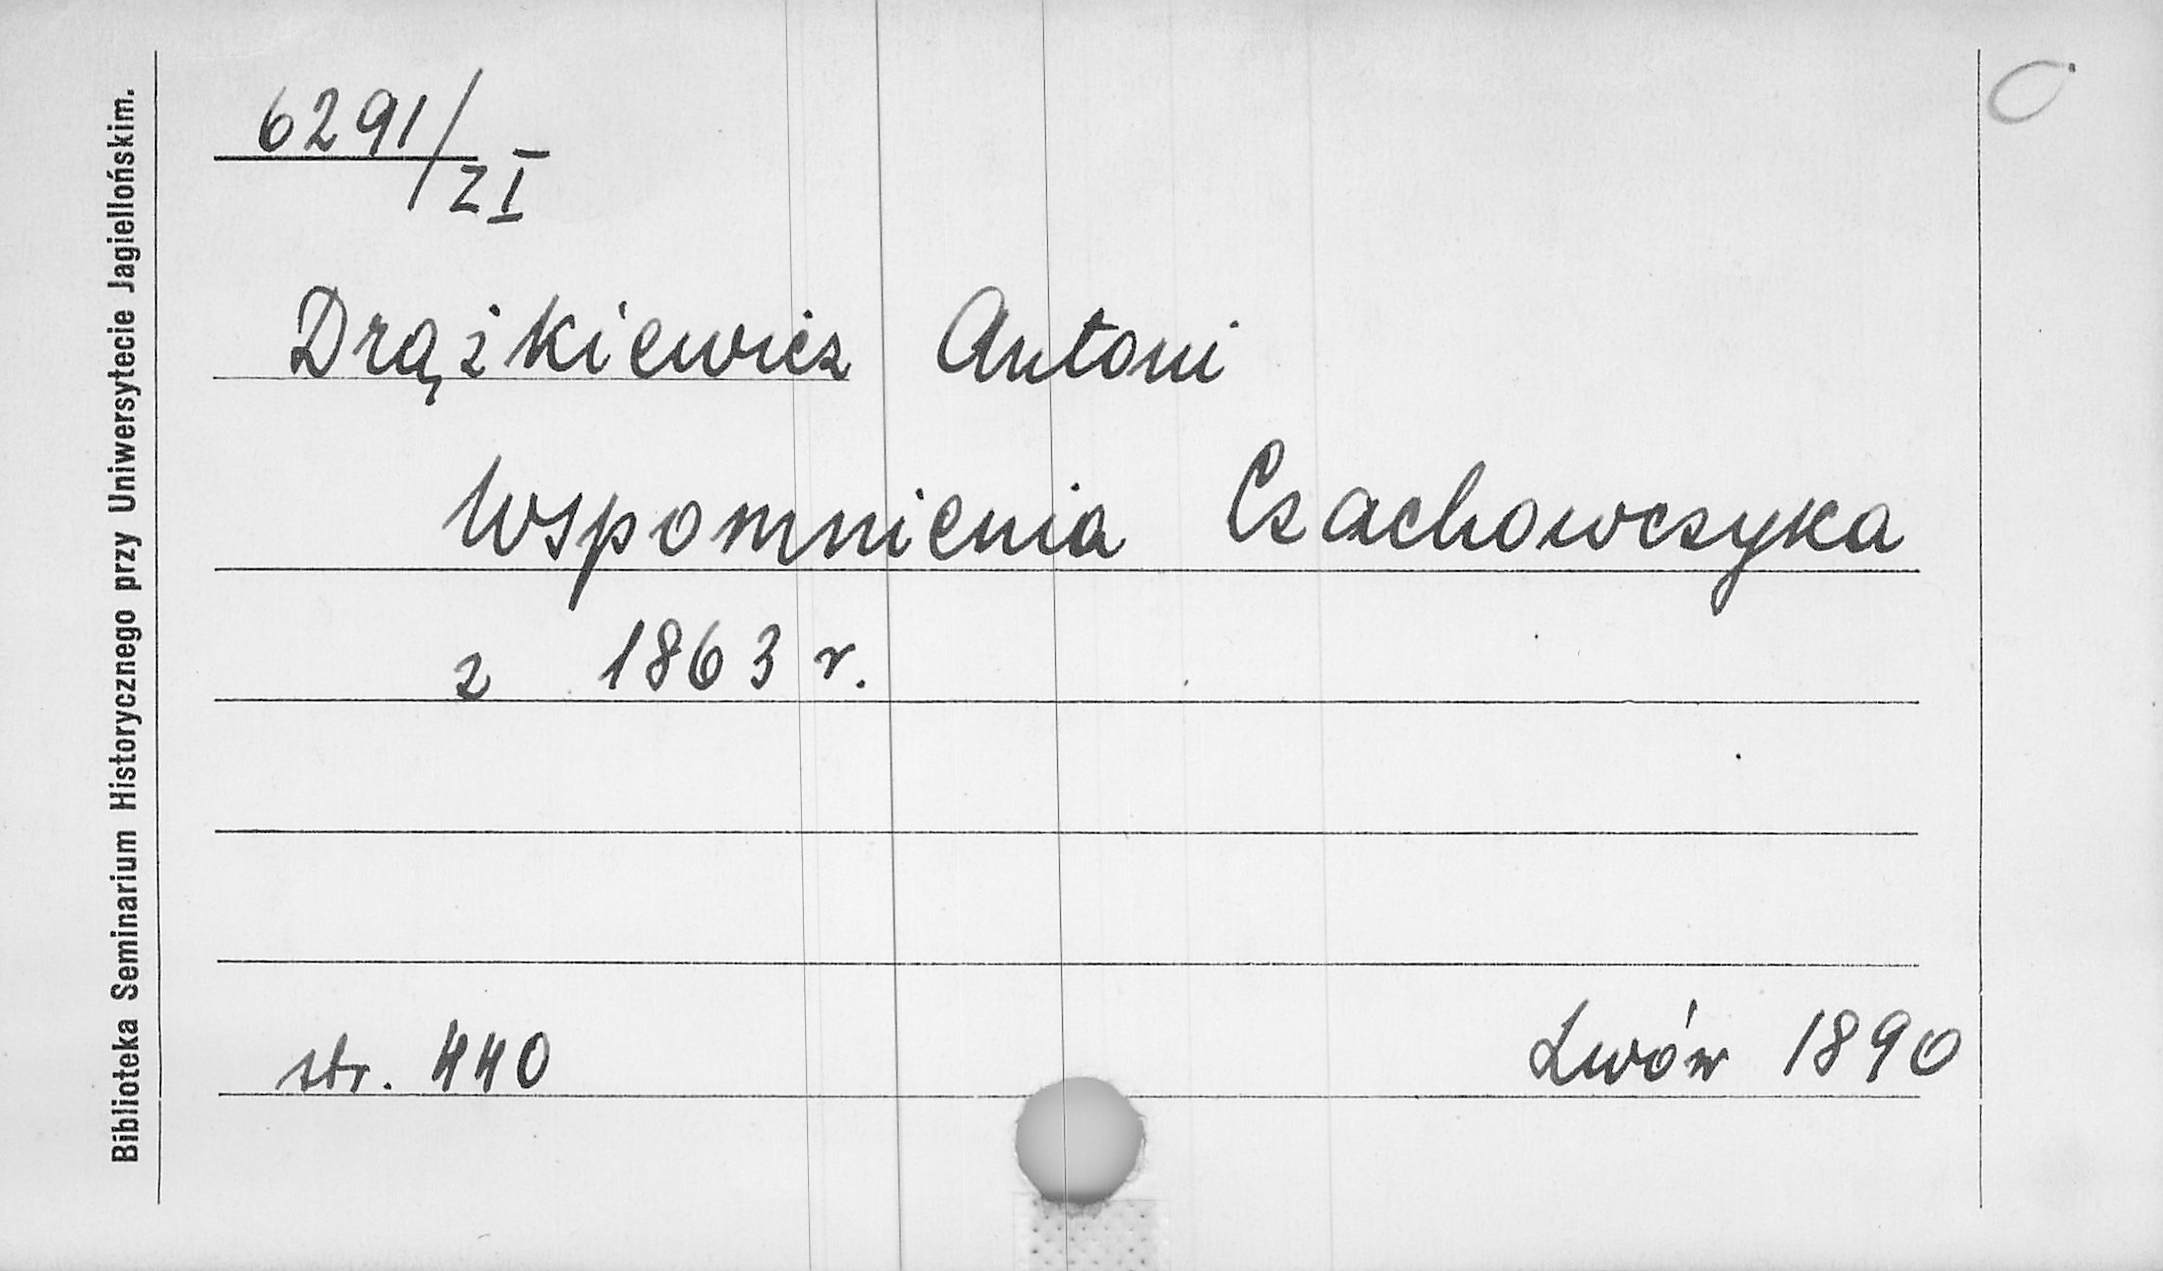 Biblioteka Seminarium Historycznego przy Uniwersytecie Jagiellońskim.
6291/ZI
Drążkiewicz Antoni
Wspomnienia Czachowczyka
z 1863 r.
str. 440
Lwów 1890